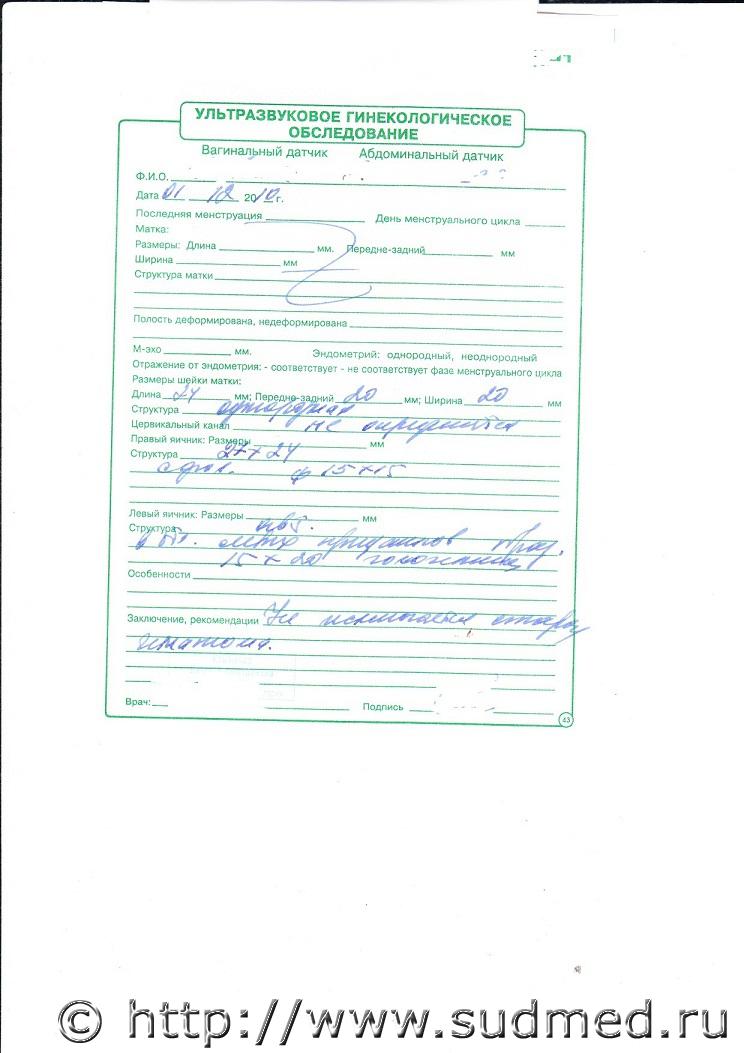 УЛЬТРАЗВУКОВОЕ ГИНЕКОЛОГИЧЕСКОЕ
ОБСЛЕДОВАНИЕ
Вагинальный датчик Абдоминальный датчик
Ф.И.О.
Дата 01 12 2010 г.
Последняя менструация День менструального цикла
Матка:
Размеры: Длина мм. Передне-задний мм
Ширина мм
Структура матки
Полость деформирована, недеформирована
М-эхо мм. Эндометрий: однородный, неоднородный
Отражение от эндометрия: - соответствует - не соответствует фазе менструального цикла
Размеры шейки матки:
Длина 24 мм; Передне-задний 20 мм; Ширина 20 мм
Структура однородная
Цервикальный канал не определяется
Правый яичник: Размеры мм
Структура 27х24
ф 15х15
Левый яичник: Размеры мм
Структура
придатков
15х20
Особенности
Заключение, рекомендации Не исключается
гематома.
Врач: Подпись
43
© http://www.sudmed.ru